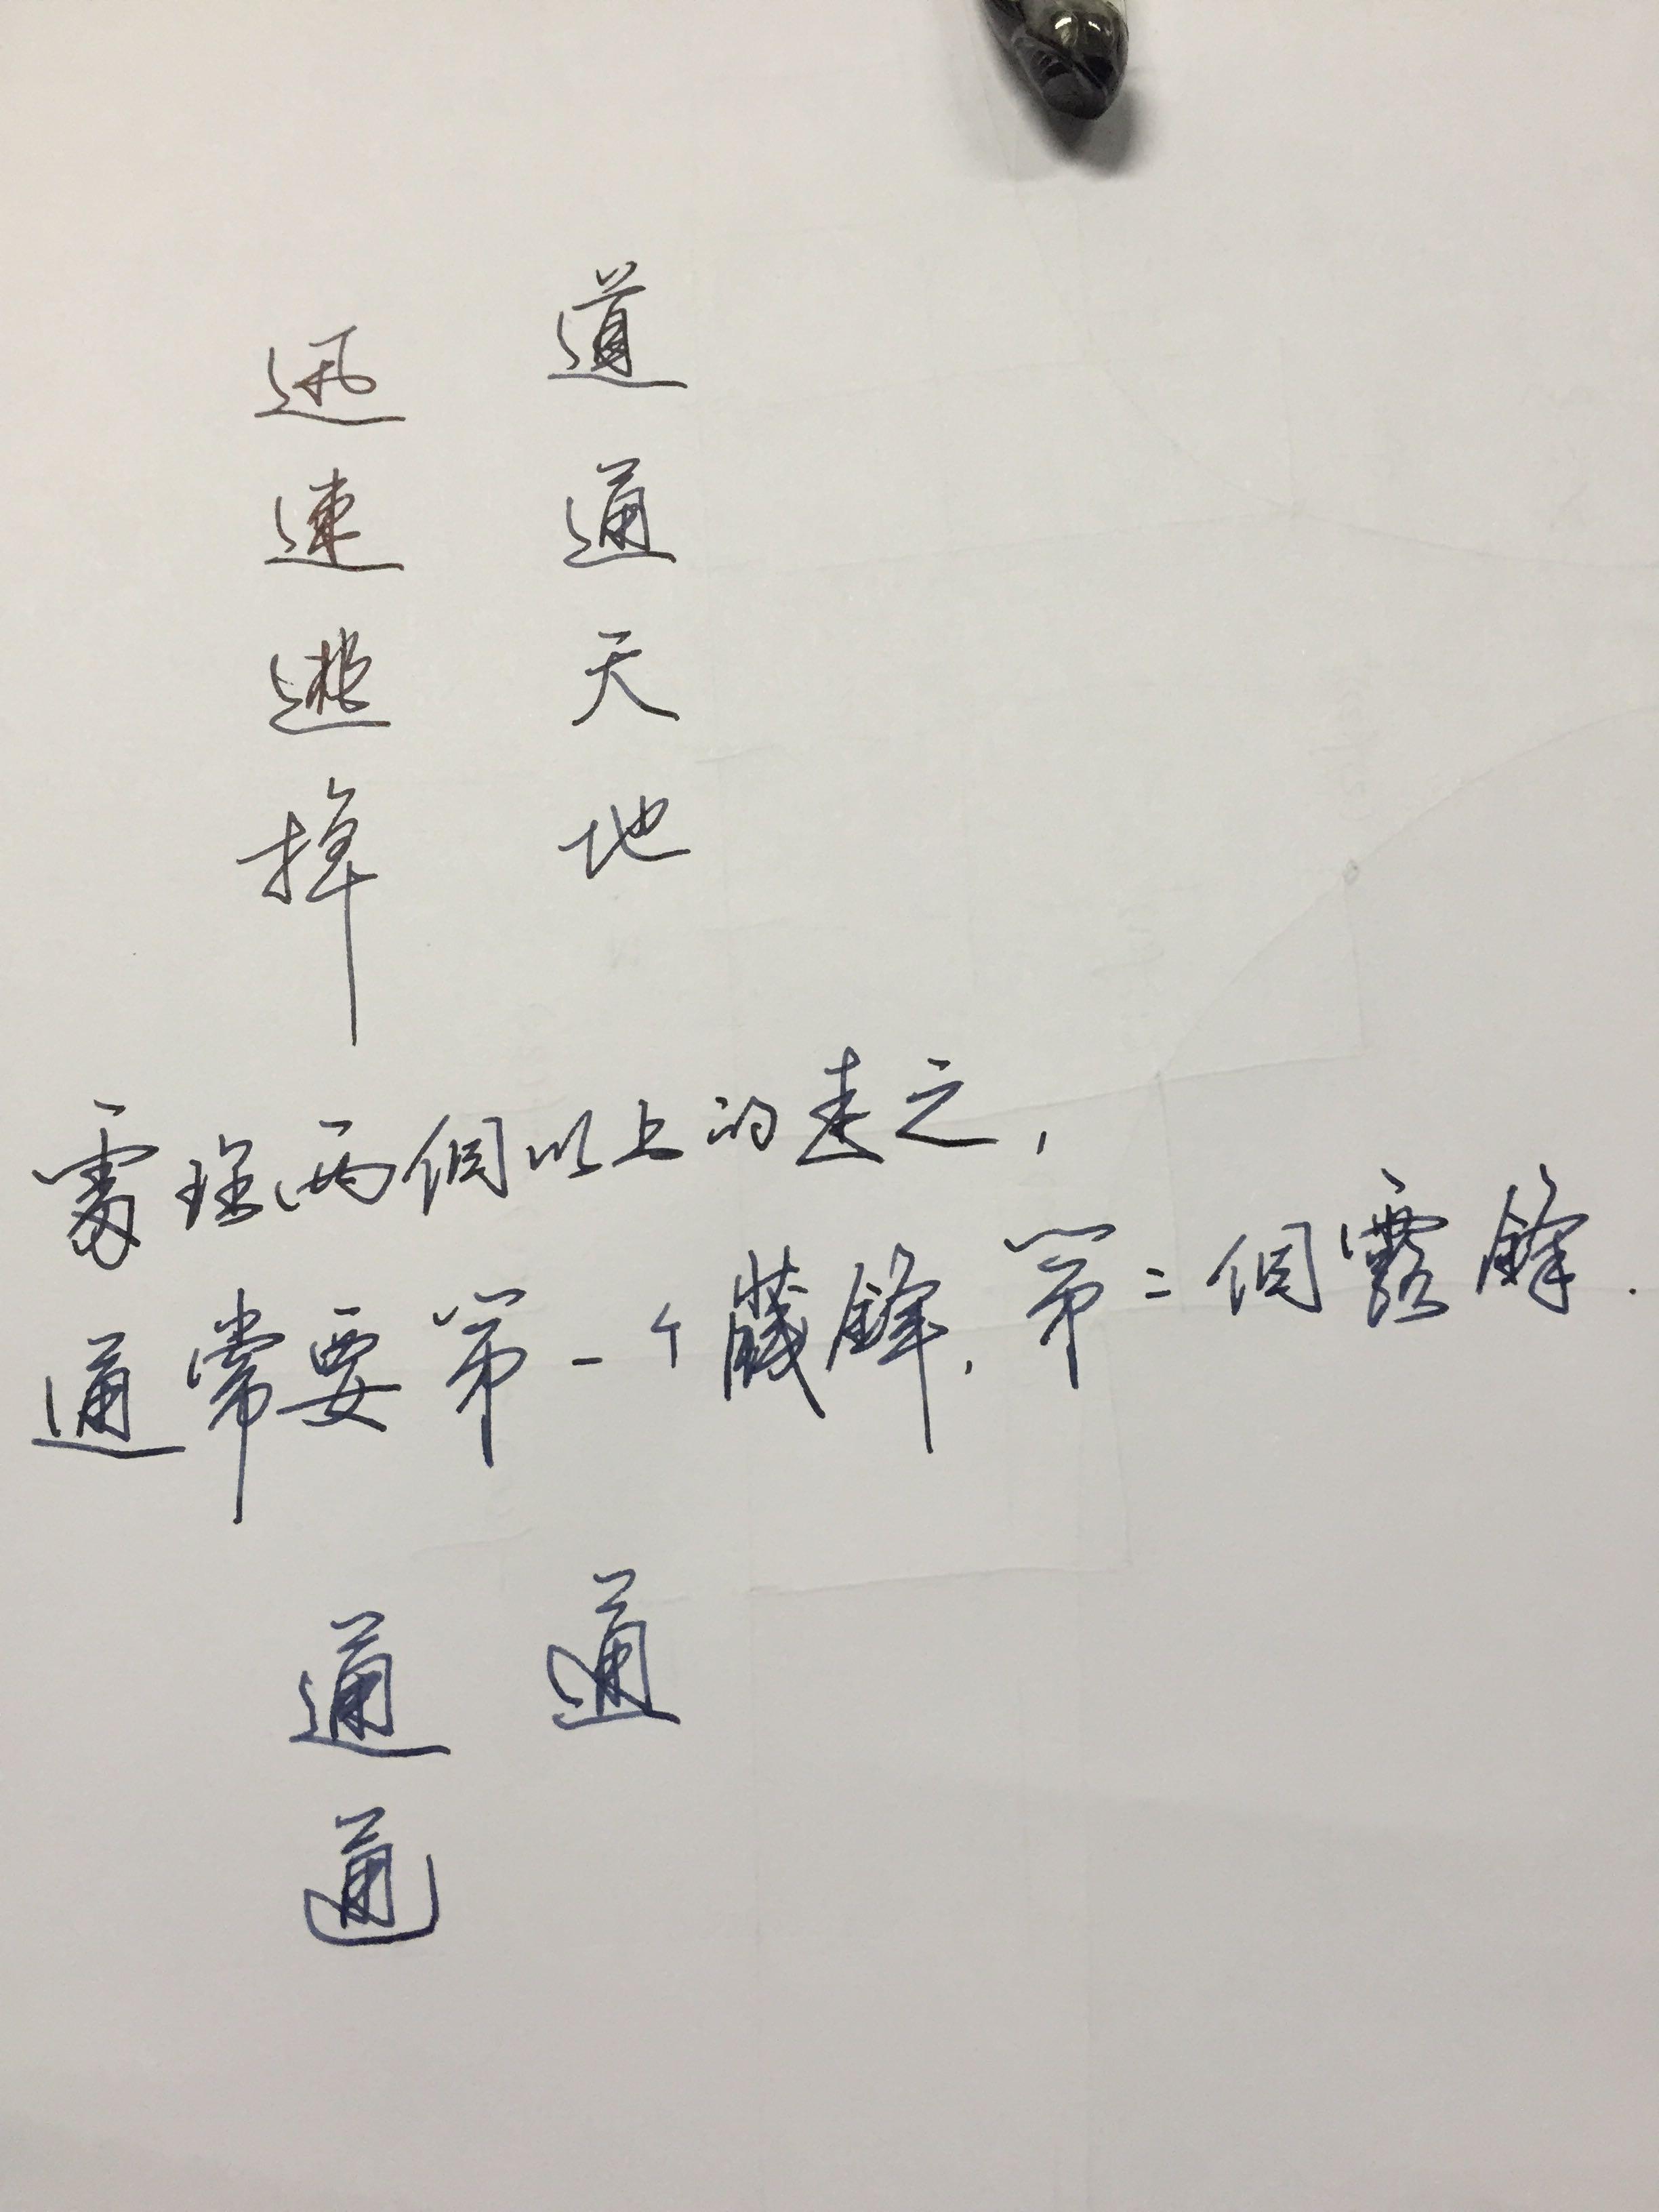 道通天地
迅速逃掉
處理兩個以上的走之，
通常要第一个藏鋒，第二個露鋒．
通
通
通